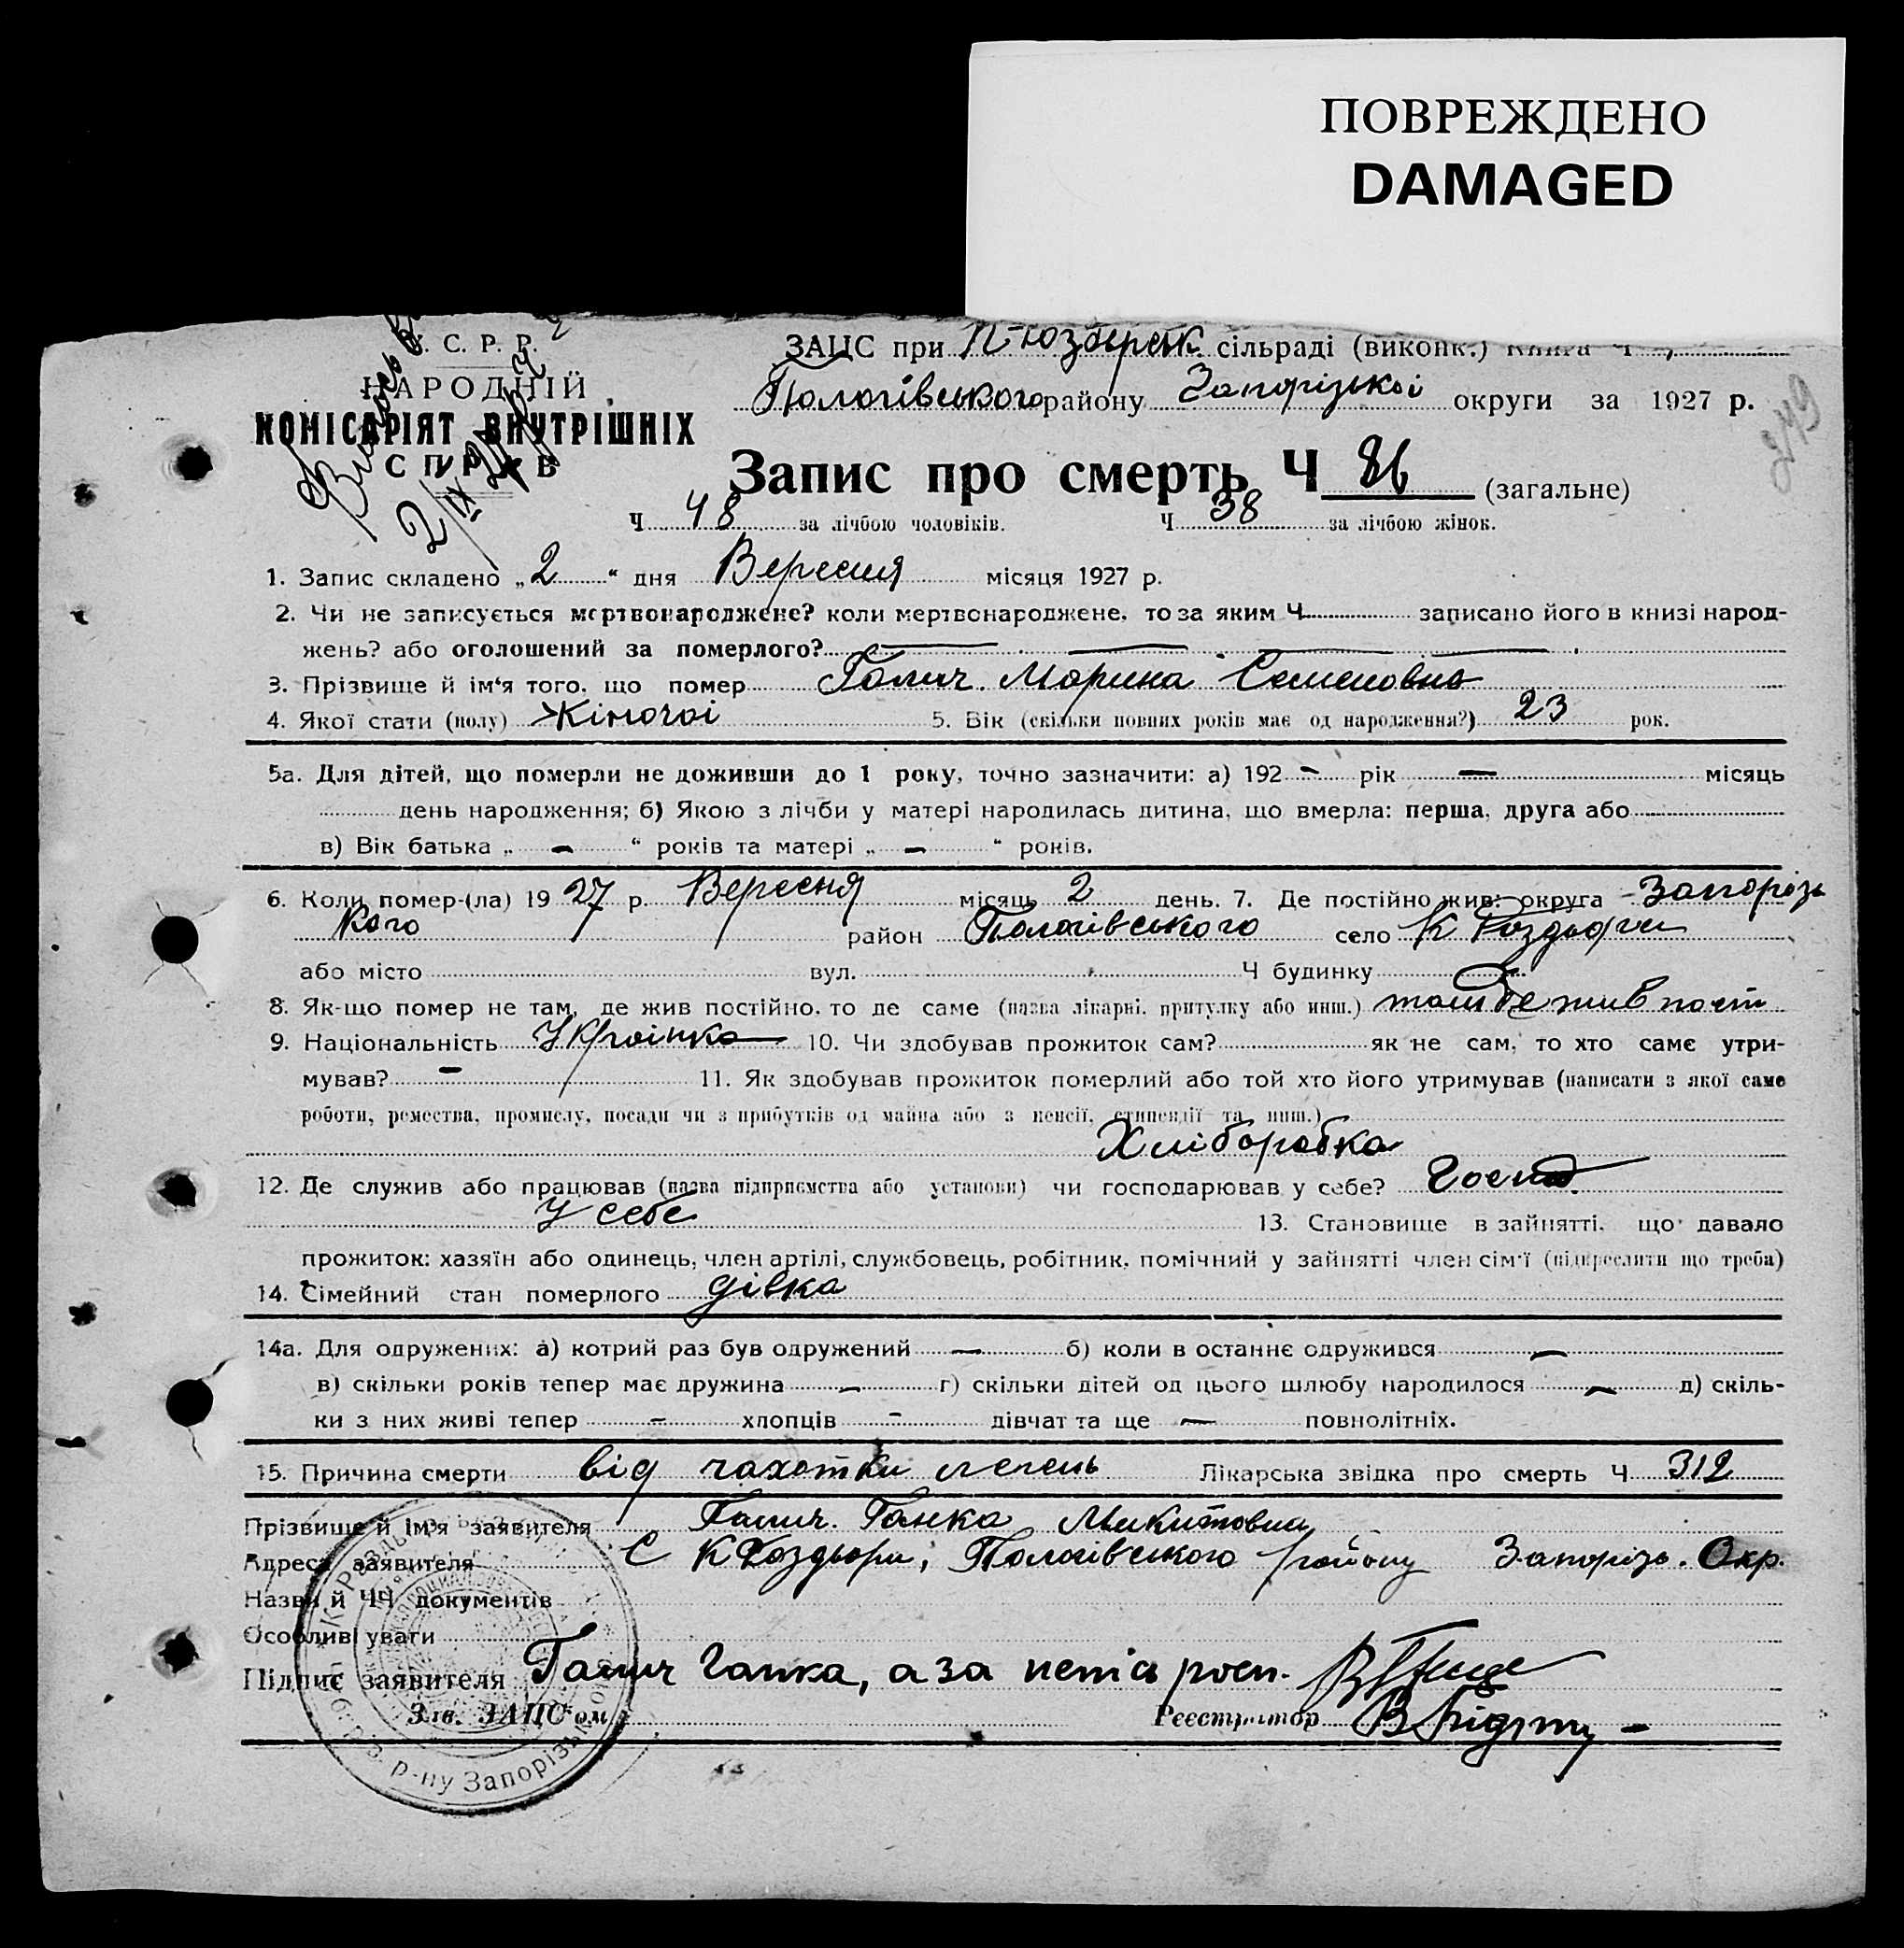 ПОВРЕЖДЕНО
DAMAGED
У. С. Р. Р.
НАРОДНІЙ
КОМІСАРІЯТ ВНУТРІШНІХ
СПРАВ
ЗАПС при сільраді (виконк.) Книга Ч
Пологівського району Запорізької округи за 1927 р.
249
Запис про смерть Ч 86 (загальне)
Ч 48 за лічбою чоловіків. Ч 38 за лічбою жінок.
2/IX
1. Запис складено „2“ дня Вересня місяця 1927 р.
2. Чи не записується мертвонароджене? коли мертвонароджене, то за яким Ч записано його в книзі народ-
жень? або оголошений за померлого? —
3. Прізвище й ім‘я того, що помер Галич Марина Семеновна
4. Якої стати (полу) Жіночої 5. Вік (скільки повних років має од народження?) 23 рок.
5а. Для дітей, що померли не доживши до 1 року, точно зазначити: а) 192 - рік — місяць
день народження; б) Якою з лічби у матері народилась дитина, що вмерла: перша, друга або
в) Вік батька „ - “ років та матері „ - “ років.
6. Коли помер-(ла) 1927 р. Вересня місяць 2 день. 7. Де постійно жив: округа Запорізь
кого район Пологівського село К Роздори
або місто вул. Ч будинку
8. Як-що помер не там, де жив постійно, то де саме (назва лікарні, притулку або инш.) там де жив пост
9. Національність Українка 10. Чи здобував прожиток сам? як не сам, то хто саме утри-
мував? - 11. Як здобував прожиток померлий або той хто його утримував (написати з якої саме
роботи, ремества, промислу, посади чи з прибутків од майна або з пенсії, стипендії та инш.)
Хліборобка
12. Де служив або працював (назва підприємства або установи) чи господарював у себе? Госпо.
У себе 13. Становище в зайнятті, що давало
прожиток: хазяїн або одинець, член артілі, службовець, робітник, помічний у зайнятті член сім‘ї (підкреслити що треба)
14. Сімейний стан померлого дівка
14а. Для одружених: а) котрий раз був одружений — б) коли в останнє одружився —
в) скільки років тепер має дружина - г) скільки дітей од цього шлюбу народилося - д) скіль-
ки з них живі тепер - хлопців - дівчат та ще — повнолітніх.
15. Причина смерти від чахотки легень Лікарська звідка про смерть Ч 312
Прізвище й ім‘я заявителя Галич Ганка Микитовна
Адреса заявителя С К Роздори, Пологівського району Запорізь. Окр.
Назви й ЧЧ документів
Особливі уваги
Підпис заявителя Галич Ганка, а за непись росп.
Зав. ЗАПС‘ом Реєстратор
р-ну Запорізького